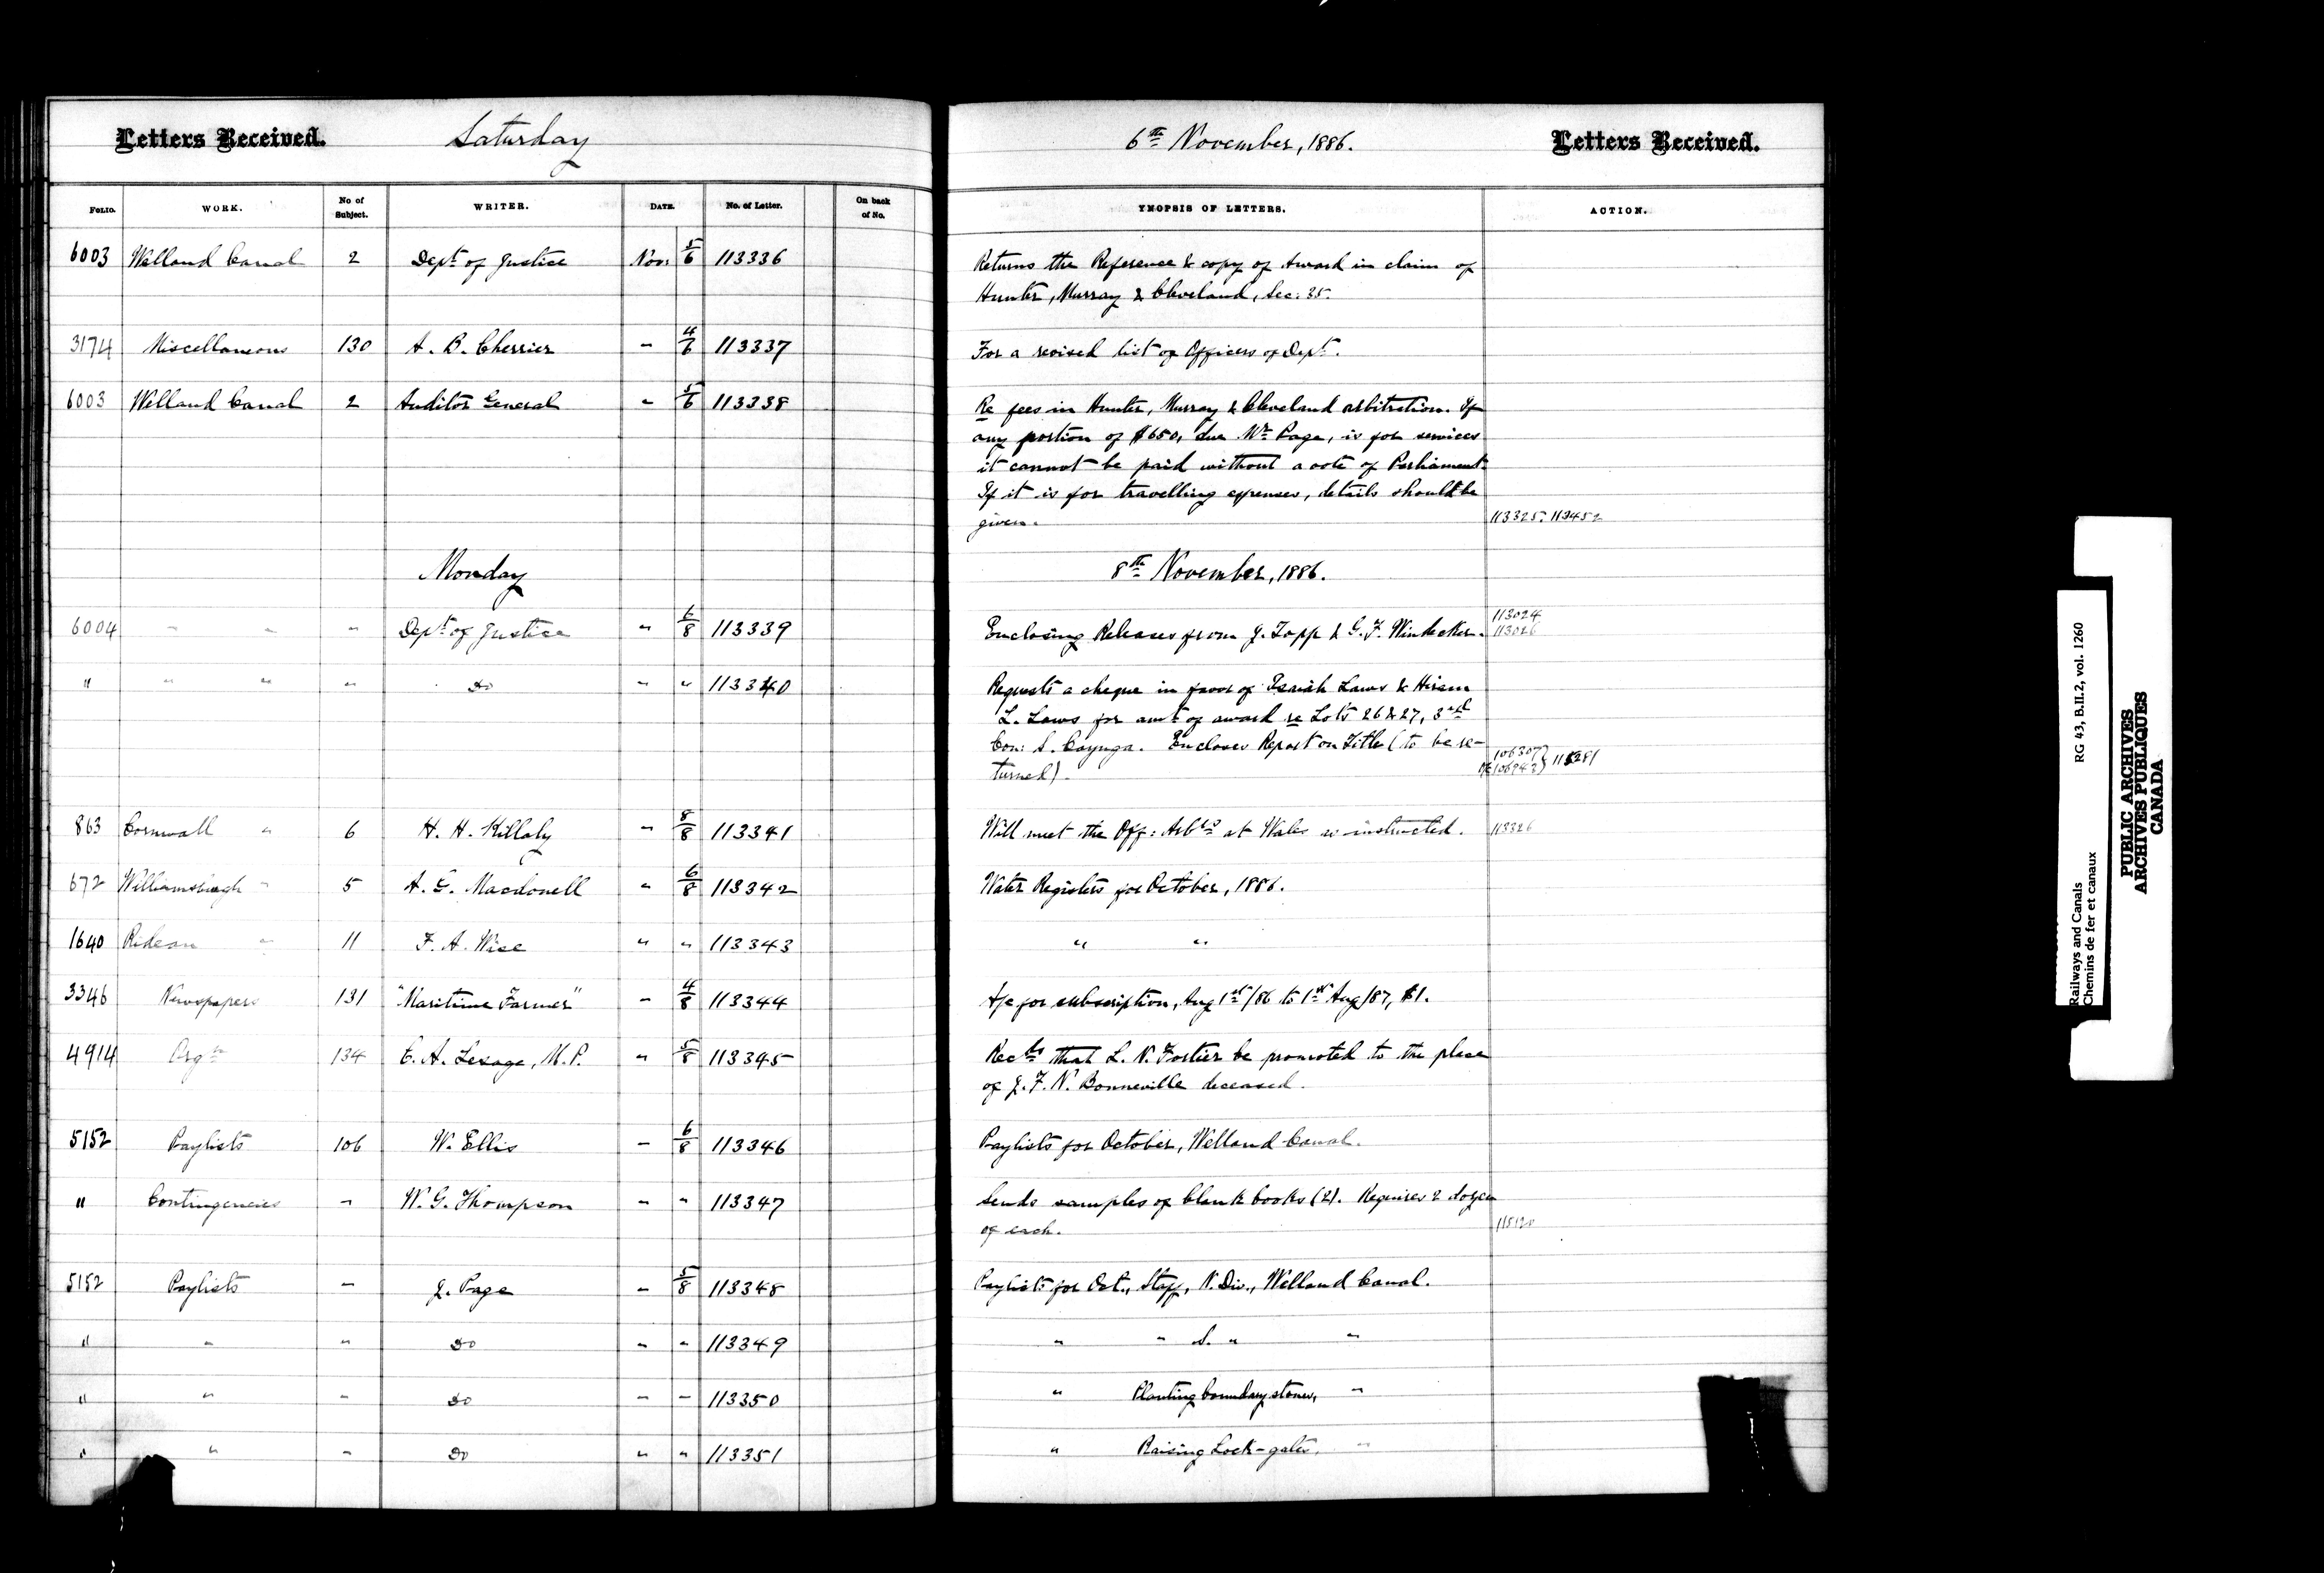 Letters Received. Saturday 6th November, 1886. Letters Received.
FOLIO. WORK. No of Subject. WRITER. DATE. No. of Letter. On back of No. YNOPSIS OF LETTERS. ACTION.
6003 Welland Canal 2 Dept. of Justice Nov: 5/6 113336 Returns the Reference & copy of Award in claim of
Hunter, Murray & Cleveland, Sec: 35.
3174 Miscellaneous 130 A. B. Cherrier " 4/6 113337 For a revised list of Officers of Dept.
6003 Welland Canal 2 Auditor General " 5/6 113338 Re fees in Hunter, Murray & Cleveland arbitration. If
any portion of $650, due Mr Page, is for services
it cannot be paid without a vote of Parliament.
If it is for travelling expenses, details should be
given. 113325. 113452
Monday 8th November, 1886.
6004 " " " Dept. of Justice " 6/8 113339 Enclosing Releases from J. Topp & G. F. Windecker. 113024 113026
" " " " Do " " 113340 Requests a cheque in favor of Isaiah Laws & Hiram
L. Laws for amt of award re Lots 26 & 27, 3rd
Con: S. Cayuga. Encloses Report on Title (to be re-
turned).
863 Cornwall " 6 H. H. Killaly " 8/8 113341 Will meet the Off: Arbtrs at Wales as instructed. 113326
672 Williamsburgh " 5 A. G. Macdonell " 6/8 113342 Water Registers for October, 1886.
1640 Rideau " 11 F. A. Wise " " 113343 " "
3346 Newspapers 131 "Maritime Farmer" " 4/8 113344 A/c for subscription, Aug 1st/86 to 1st Aug/87, $1.
4914 Orgn 134 C. A. Lesage, M.P. " 5/8 113345 Recds that L. N. Fortier be promoted to the place
of J. F. N. Bonneville deceased.
5152 Paylists 106 W. Ellis " 6/8 113346 Paylists for October, Welland Canal.
" Contingencies " W. G. Thompson " " 113347 Sends samples of blank books (2). Requires 2 dozen
of each.
5152 Paylists " J. Page " 5/8 113348 Paylists for Oct., Staff, N. Div., Welland Canal.
" " " Do " " 113349 " " S. " "
" " " Do " " 113350 " Planting boundary stones, "
" " " Do " " 113351 " Raising Lock-gates, "
Railways and Canals RG 43, B.II.2, vol. 1260
Chemins de fer et canaux
PUBLIC ARCHIVES
ARCHIVES PUBLIQUES
CANADA